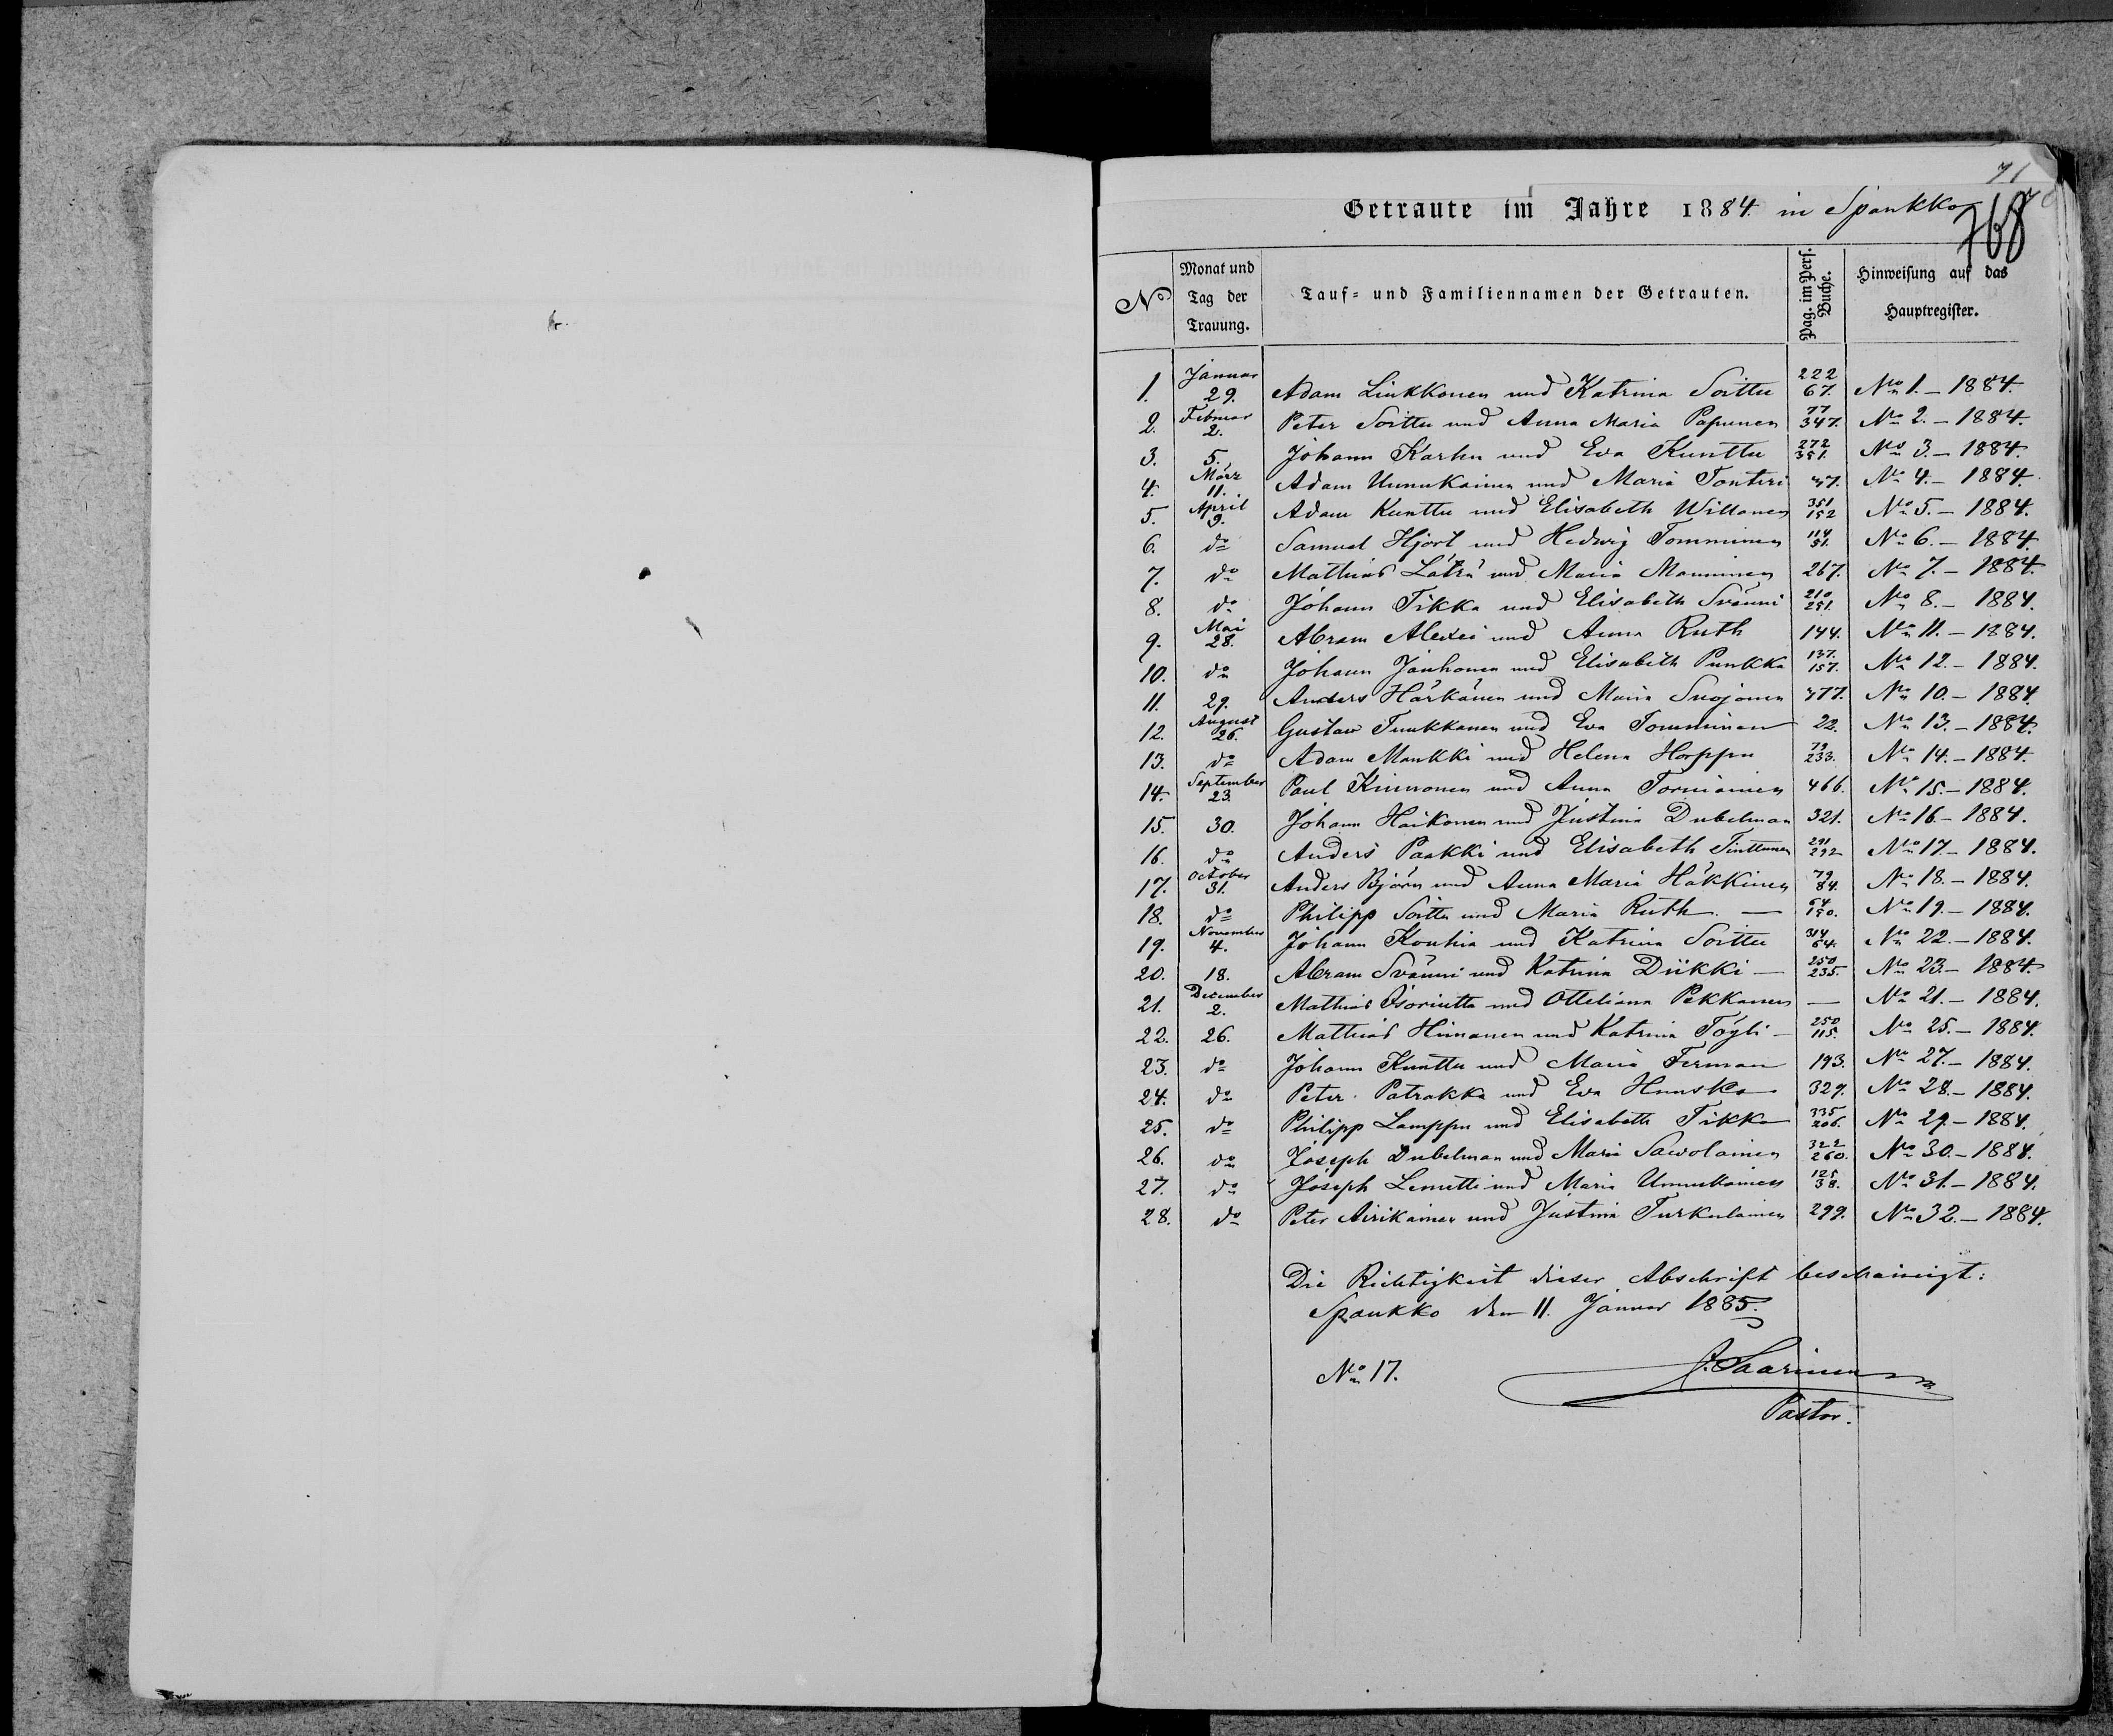 71
Getraute im Jahre 1884. in Spankko
768
No
Monat und Tag der Trauung.
Tauf- und Familiennamen der Getrauten.
Pag. im Pers. Buche.
Hinweisung auf das Hauptregister.
1. Januar 29. Adam Liukkonen und Katrina Soittu 222 67. No 1. - 1884.
2. Februar 2. Peter Soittu und Anna Maria Papunen 77 347. No 2. - 1884.
3. 5. Johann Karhu und Eva Kunttu 272 351. No 3. - 1884.
4. März 11. Adam Ununkainen und Maria Tonteri 47. No 4. - 1884.
5. April 9. Adam Kunttu und Elisabeth Willanen 351 152 No 5. - 1884.
6. do Samuel Hjort und Hedwig Tomminen 114 51. No 6. - 1884.
7. do Mathias Lätti und Maria Manninen 267. No 7. - 1884.
8. do Johann Tikka und Elisabeth Svänni 210 251. No 8. - 1884.
9. Mai 28. Abram Alexei und Anna Ruth 144. No 11. - 1884.
10. do Johann Jauhonen und Elisabeth Punkka 137. 157. No 12. - 1884.
11. 29. Anders Härkänen und Maria Suojanen 477. No 10. - 1884.
12. August 26. Gustav Tuukkanen und Eva Tomminen 22. No 13. - 1884.
13. do Adam Maukki und Helena Horppu 79 233. No 14. - 1884.
14. September 23. Paul Kinnonen und Anna Torniainen 466. No 15. - 1884.
15. 30. Johann Haikonen und Justina Dubelman 321. No 16. - 1884.
16. do Anders Paakki und Elisabeth Tinttunen 291 292 No 17. - 1884.
17. October 31. Anders Björn und Anna Maria Häkkinen 79 84. No 18. - 1884.
18. do Philipp Soittu und Maria Ruth. — 64 150. No 19. - 1884.
19. November 4. Johann Kouhia und Katrina Soittu 314 64. No 22. - 1884.
20. 18. Abram Svänni und Katrina Dükki — 250 235. No 23. - 1884.
21. December 2. Mathias und Otteliana Pekkanen — No 21. - 1884.
22. 26. Mathias Himanen und Katrina Tögli - 250 115. No 25. - 1884.
23. do Johann Kunttu und Maria Ferman 193. No 27. - 1884.
24. do Peter Patrakka und Eva Hunska 329. No 28. - 1884.
25. do Philipp Lamppu und Elisabeth Tikka 335 206. No 29. - 1884.
26. do Joseph Dubelman und Maria Sawolainen 322 260. No 30. - 1884.
27. do Joseph Lemetti und Maria Ununkainen 125 38. No 31. - 1884.
28. do Peter Airikainen und Justina Turkulainen 299. No 32. - 1884.
Die Richtigkeit dieser Abschrift bescheinigt:
Spankko den 11. Januar 1885.
No 17.
J. Saarinen
Pastor.